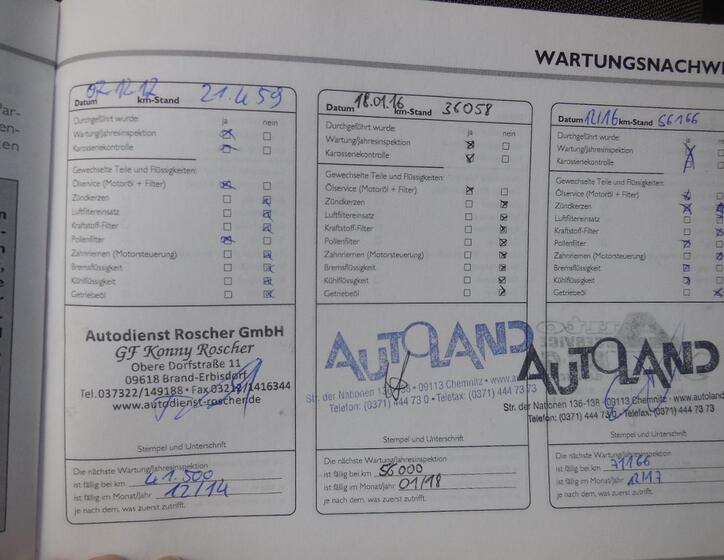 WARTUNGSNACHW
Datum 07.12.12 km-Stand 21.459
Durchgeführt wurde: ja nein
Wartung/Jahresinspektion
Karosseriekontrolle
Gewechselte Teile und Flüssigkeiten:
Ölservice (Motoröl + Filter)
Zündkerzen
Luftfiltereinsatz
Kraftstoff-Filter
Pollenfilter
Zahnriemen (Motorsteuerung)
Bremsflüssigkeit
Kühlflüssigkeit
Getriebeöl
Autodienst Roscher GmbH
GF Konny Roscher
Obere Dorfstraße 11
09618 Brand-Erbisdorf
Tel.037322/149188 • Fax.03222/1416344
www.autodienst-roscher.de
Stempel und Unterschrift
Die nächste Wartung/Jahresinspektion
ist fällig bei km 41.500
ist fällig im Monat/Jahr 12/14
je nach dem, was zuerst zutrifft.
Datum 18.01.16 km-Stand 36058
Durchgeführt wurde: ja nein
Wartung/Jahresinspektion
Karosseriekontrolle
Gewechselte Teile und Flüssigkeiten:
Ölservice (Motoröl + Filter)
Zündkerzen
Luftfiltereinsatz
Kraftstoff-Filter
Pollenfilter
Zahnriemen (Motorsteuerung)
Bremsflüssigkeit
Kühlflüssigkeit
Getriebeöl
AUTOLAND
Str. der Nationen 136-138 • 09113 Chemnitz • www.a
Telefon: (0371) 444 73 0 • Telefax: (0371) 444 73 73
Stempel und Unterschrift
Die nächste Wartung/Jahresinspektion
ist fällig bei km 56000
ist fällig im Monat/Jahr 01/18
je nach dem, was zuerst zutrifft.
Datum 12/16 km-Stand 56166
Durchgeführt wurde: ja
Wartung/Jahresinspektion
Karosseriekontrolle
Gewechselte Teile und Flüssigkeiten:
Ölservice (Motoröl + Filter)
Zündkerzen
Luftfiltereinsatz
Kraftstoff-Filter
Pollenfilter
Zahnriemen (Motorsteuerung)
Bremsflüssigkeit
Kühlflüssigkeit
Getriebeöl
AUTOLAND
Str. der Nationen 136-138 • 09113 Chemnitz • www.autoland
Telefon: (0371) 444 73 0 • Telefax: (0371) 444 73 73
Stempel und Unterschrift
Die nächste Wartung/Jahresinspektion
ist fällig bei km 71166
ist fällig im Monat/Jahr 12/17
je nach dem, was zuerst zutrifft.